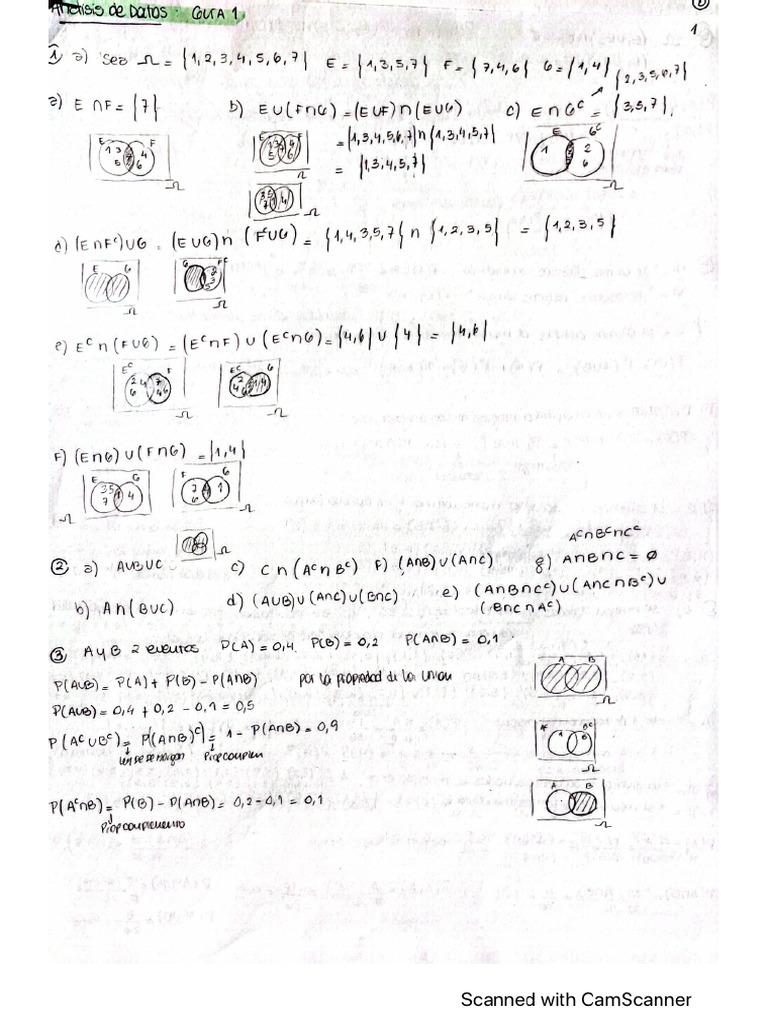 Análisis de Datos. GUIA 1
1
① a) Sea Ω = {1,2,3,4,5,6,7} E = {1,3,5,7} F = {7,4,6} G = {1,4}
{2,3,5,6,7}
a) E∩F = {7} b) E∪(F∩G) = (E∪F)∩(E∪G) c) E∩Gᶜ = {3,5,7}.
= {1,3,4,5,6,7}∩{1,3,4,5,7}
= {1,3,4,5,7}
d) (E∩Fᶜ)∪G = (E∪G)∩(Fᶜ∪G) = {1,4,3,5,7}∩{1,2,3,5} = {1,2,3,5}
e) Eᶜ∩(F∪G) = (Eᶜ∩F)∪(Eᶜ∩G) = {4,6}∪{4} = {4,6}
F) (E∩G)∪(F∩G) = {1,4}
Aᶜ∩Bᶜ∩Cᶜ
② a) A∪B∪C c) C∩(Aᶜ∩Bᶜ) F) (A∩B)∪(A∩C) g) A∩B∩C = ∅
b) A∩(B∪C) d) (A∪B)∪(A∩C)∪(B∩C) e) (A∩B∩Cᶜ)∪(A∩C∩Bᶜ)∪
(B∩C∩Aᶜ)
③ A y B 2 eventos P(A)=0,4. P(B)=0,2 P(A∩B)=0,1
P(A∪B) = P(A) + P(B) - P(A∩B) por la propiedad de la union
P(A∪B) = 0,4 + 0,2 - 0,1 = 0,5
P(Aᶜ∪Bᶜ) = P((A∩B)ᶜ) = 1 - P(A∩B) = 0,9
P(Aᶜ∩B) = P(B) - P(A∩B) = 0,2 - 0,1 = 0,1
Prop complemento
Scanned with CamScanner